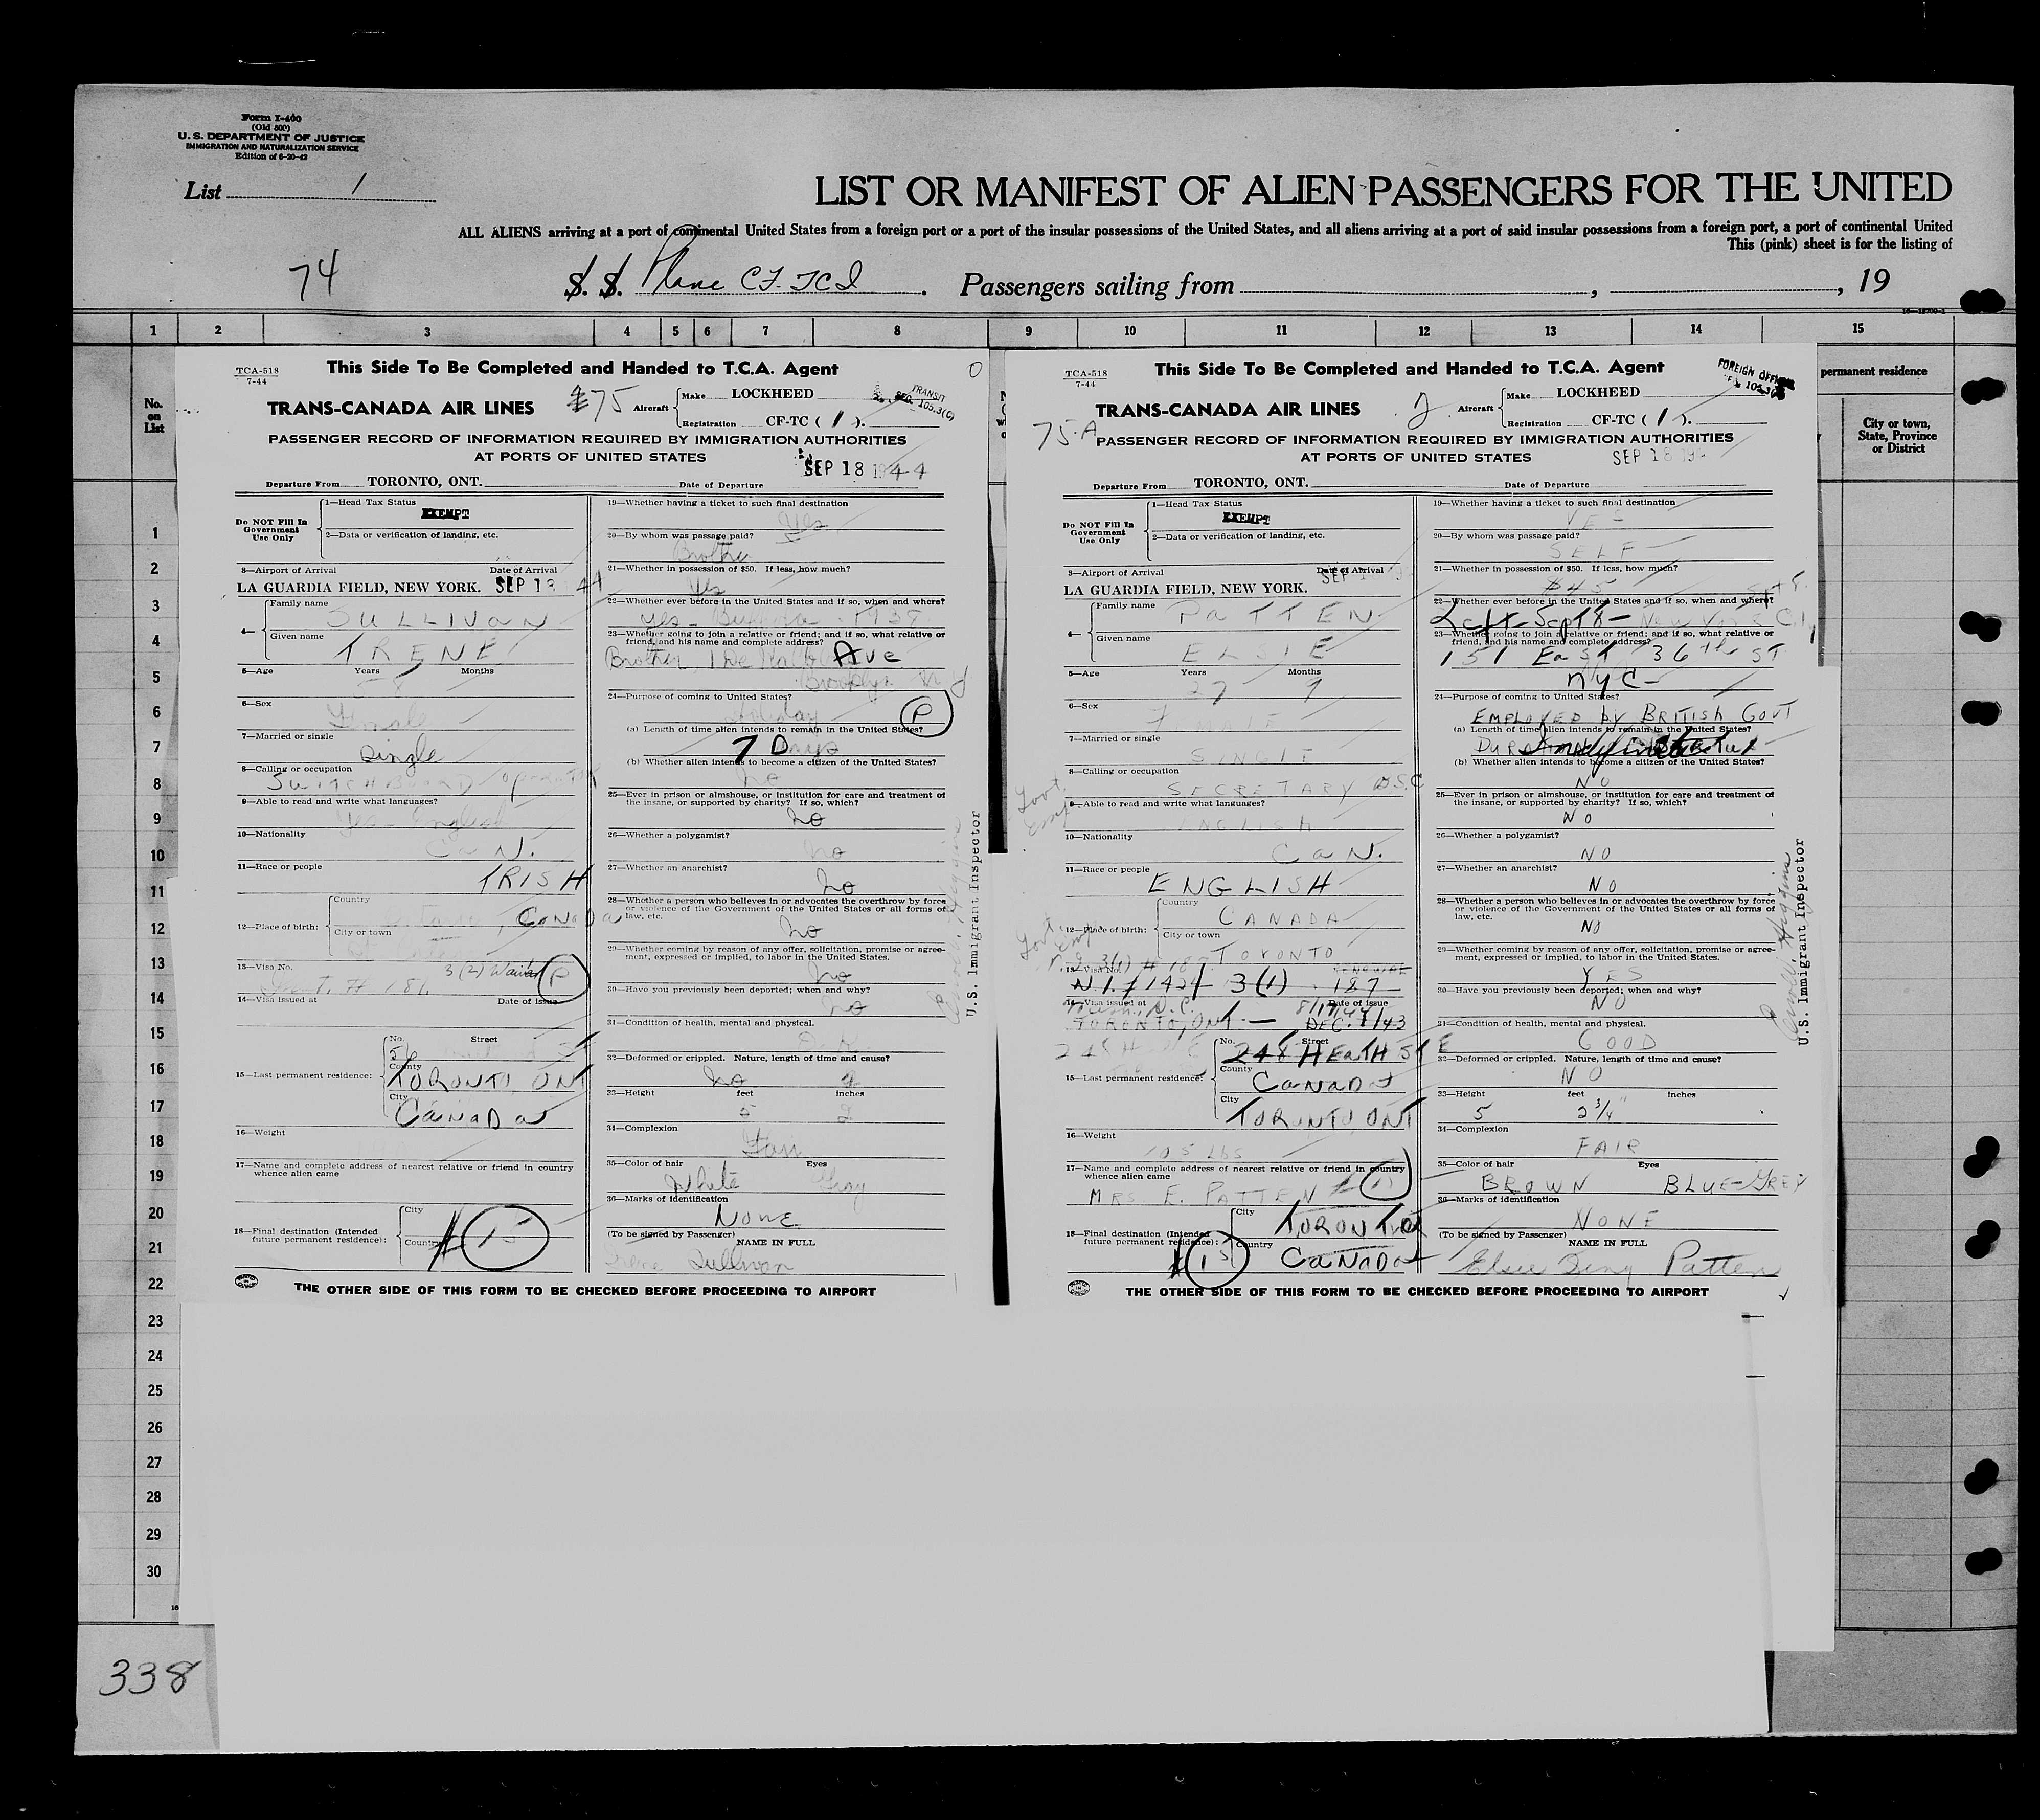 Form I-460
(Old 500)
U. S. DEPARTMENT OF JUSTICE
IMMIGRATION AND NATURALIZATION SERVICE
Edition of 6-20-42
List 1
LIST OR MANIFEST OF ALIEN PASSENGERS FOR THE UNITED
ALL ALIENS arriving at a port of continental United States from a foreign port or a port of the insular possessions of the United States, and all aliens arriving at a port of said insular possessions from a foreign port, a port of continental United
This (pink) sheet is for the listing of
74
S. S. Plane CF-TCI. Passengers sailing from , , 19
1 2 3 4 5 6 7 8 9 10 11 12 13 14 15
No. on List
permanent residence
City or town, State, Province or District
TCA-518
7-44
This Side To Be Completed and Handed to T.C.A. Agent
TRANS-CANADA AIR LINES
75
Aircraft
Make LOCKHEED
Registration CF-TC ( I ).
TRANSIT
SEC. 105.3(C)
PASSENGER RECORD OF INFORMATION REQUIRED BY IMMIGRATION AUTHORITIES
AT PORTS OF UNITED STATES
SEP 18 1944
Departure From TORONTO, ONT. Date of Departure
Do NOT Fill In Government Use Only
1—Head Tax Status
EXEMPT
2—Data or verification of landing, etc.
3—Airport of Arrival Date of Arrival
LA GUARDIA FIELD, NEW YORK. SEP 18 44
4—
Family name
SULLIVAN
Given name
IRENE
5—Age Years Months
58
6—Sex
Female
7—Married or single
Single
8—Calling or occupation
SWITCHBOARD operator
9—Able to read and write what languages?
Yes - English
10—Nationality
CAN.
11—Race or people
IRISH
12—Place of birth:
Country
CANADA
City or town
13—Visa No.
3(2) Waiver P
14—Visa issued at Date of issue
15—Last permanent residence:
No. Street
County
TORONTO, ONT
City
CANADA
16—Weight
17—Name and complete address of nearest relative or friend in country whence alien came
18—Final destination (Intended future permanent residence):
City
Country
15
19—Whether having a ticket to such final destination
Yes
20—By whom was passage paid?
Brother
21—Whether in possession of $50. If less, how much?
Yes
22—Whether ever before in the United States and if so, when and where?
23—Whether going to join a relative or friend; and if so, what relative or friend, and his name and complete address?
Brother, Ave
Brooklyn N Y
24—Purpose of coming to United States?
Holiday P
(a) Length of time alien intends to remain in the United States?
7 Days
(b) Whether alien intends to become a citizen of the United States?
No
25—Ever in prison or almshouse, or institution for care and treatment of the insane, or supported by charity? If so, which?
No
26—Whether a polygamist?
No
27—Whether an anarchist?
No
28—Whether a person who believes in or advocates the overthrow by force or violence of the Government of the United States or all forms of law, etc.
No
29—Whether coming by reason of any offer, solicitation, promise or agreement, expressed or implied, to labor in the United States?
No
30—Have you previously been deported; when and why?
No
31—Condition of health, mental and physical.
O.K.
32—Deformed or crippled. Nature, length of time and cause?
No
33—Height feet inches
5 2
34—Complexion
Fair
35—Color of hair Eyes
White Gray
36—Marks of identification
None
(To be signed by Passenger) NAME IN FULL
Irene Sullivan
U.S. Immigrant Inspector
THE OTHER SIDE OF THIS FORM TO BE CHECKED BEFORE PROCEEDING TO AIRPORT
TCA-518
7-44
This Side To Be Completed and Handed to T.C.A. Agent
FOREIGN OFFICIAL
TRANS-CANADA AIR LINES
2
75-A
Aircraft
Make LOCKHEED
Registration CF-TC ( I ).
PASSENGER RECORD OF INFORMATION REQUIRED BY IMMIGRATION AUTHORITIES
AT PORTS OF UNITED STATES
SEP 18
Departure From TORONTO, ONT. Date of Departure
Do NOT Fill In Government Use Only
1—Head Tax Status
EXEMPT
2—Data or verification of landing, etc.
3—Airport of Arrival Date of Arrival
LA GUARDIA FIELD, NEW YORK.
4—
Family name
PATTEN
Given name
ELSIE
5—Age Years Months
27 9
6—Sex
FEMALE
7—Married or single
SINGLE
8—Calling or occupation
SECRETARY B.S.C
Govt. Emp
9—Able to read and write what languages?
ENGLISH
10—Nationality
CAN.
11—Race or people
ENGLISH
12—Place of birth:
Country
CANADA
City or town
TORONTO
13—Visa No.
3(1) 187
14—Visa issued at Date of issue
TORONTO, ONT. — DEC. 8/43
15—Last permanent residence:
No. Street
248 HEATH ST E
County
CANADA
City
TORONTO, ONT
16—Weight
105 LBS
17—Name and complete address of nearest relative or friend in country whence alien came
MRS. E. PATTEN
18—Final destination (Intended future permanent residence):
City
TORONTO
Country
CANADA
15
19—Whether having a ticket to such final destination
YES
20—By whom was passage paid?
SELF
21—Whether in possession of $50. If less, how much?
$45
22—Whether ever before in the United States and if so, when and where?
Left - Sept 8 - New York City
23—Whether going to join a relative or friend; and if so, what relative or friend, and his name and complete address?
151 East 36th ST
NYC-
24—Purpose of coming to United States?
EMPLOYED by BRITISH GOVT
(a) Length of time alien intends to remain in the United States?
(b) Whether alien intends to become a citizen of the United States?
NO
25—Ever in prison or almshouse, or institution for care and treatment of the insane, or supported by charity? If so, which?
NO
26—Whether a polygamist?
NO
27—Whether an anarchist?
NO
28—Whether a person who believes in or advocates the overthrow by force or violence of the Government of the United States or all forms of law, etc.
NO
29—Whether coming by reason of any offer, solicitation, promise or agreement, expressed or implied, to labor in the United States?
YES
30—Have you previously been deported; when and why?
NO
31—Condition of health, mental and physical.
GOOD
32—Deformed or crippled. Nature, length of time and cause?
NO
33—Height feet inches
5 2 3/4"
34—Complexion
FAIR
35—Color of hair Eyes
BROWN BLUE-GREY
36—Marks of identification
NONE
(To be signed by Passenger) NAME IN FULL
Elsie Patten
U.S. Immigrant Inspector
THE OTHER SIDE OF THIS FORM TO BE CHECKED BEFORE PROCEEDING TO AIRPORT
1
2
3
4
5
6
7
8
9
10
11
12
13
14
15
16
17
18
19
20
21
22
23
24
25
26
27
28
29
30
338